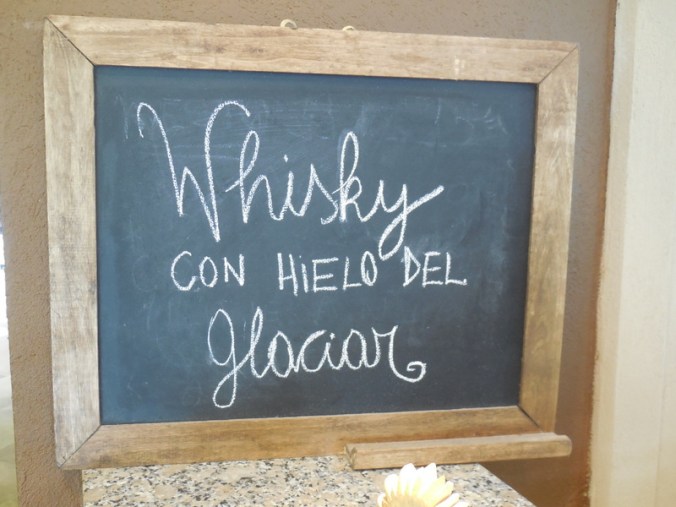 Whisky
CON HIELO DEL
glaciar